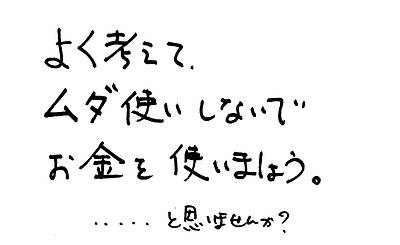 よく考えて、
ムダ使いしないで
お金を使いましょう。
・・・・・と思いませんか？